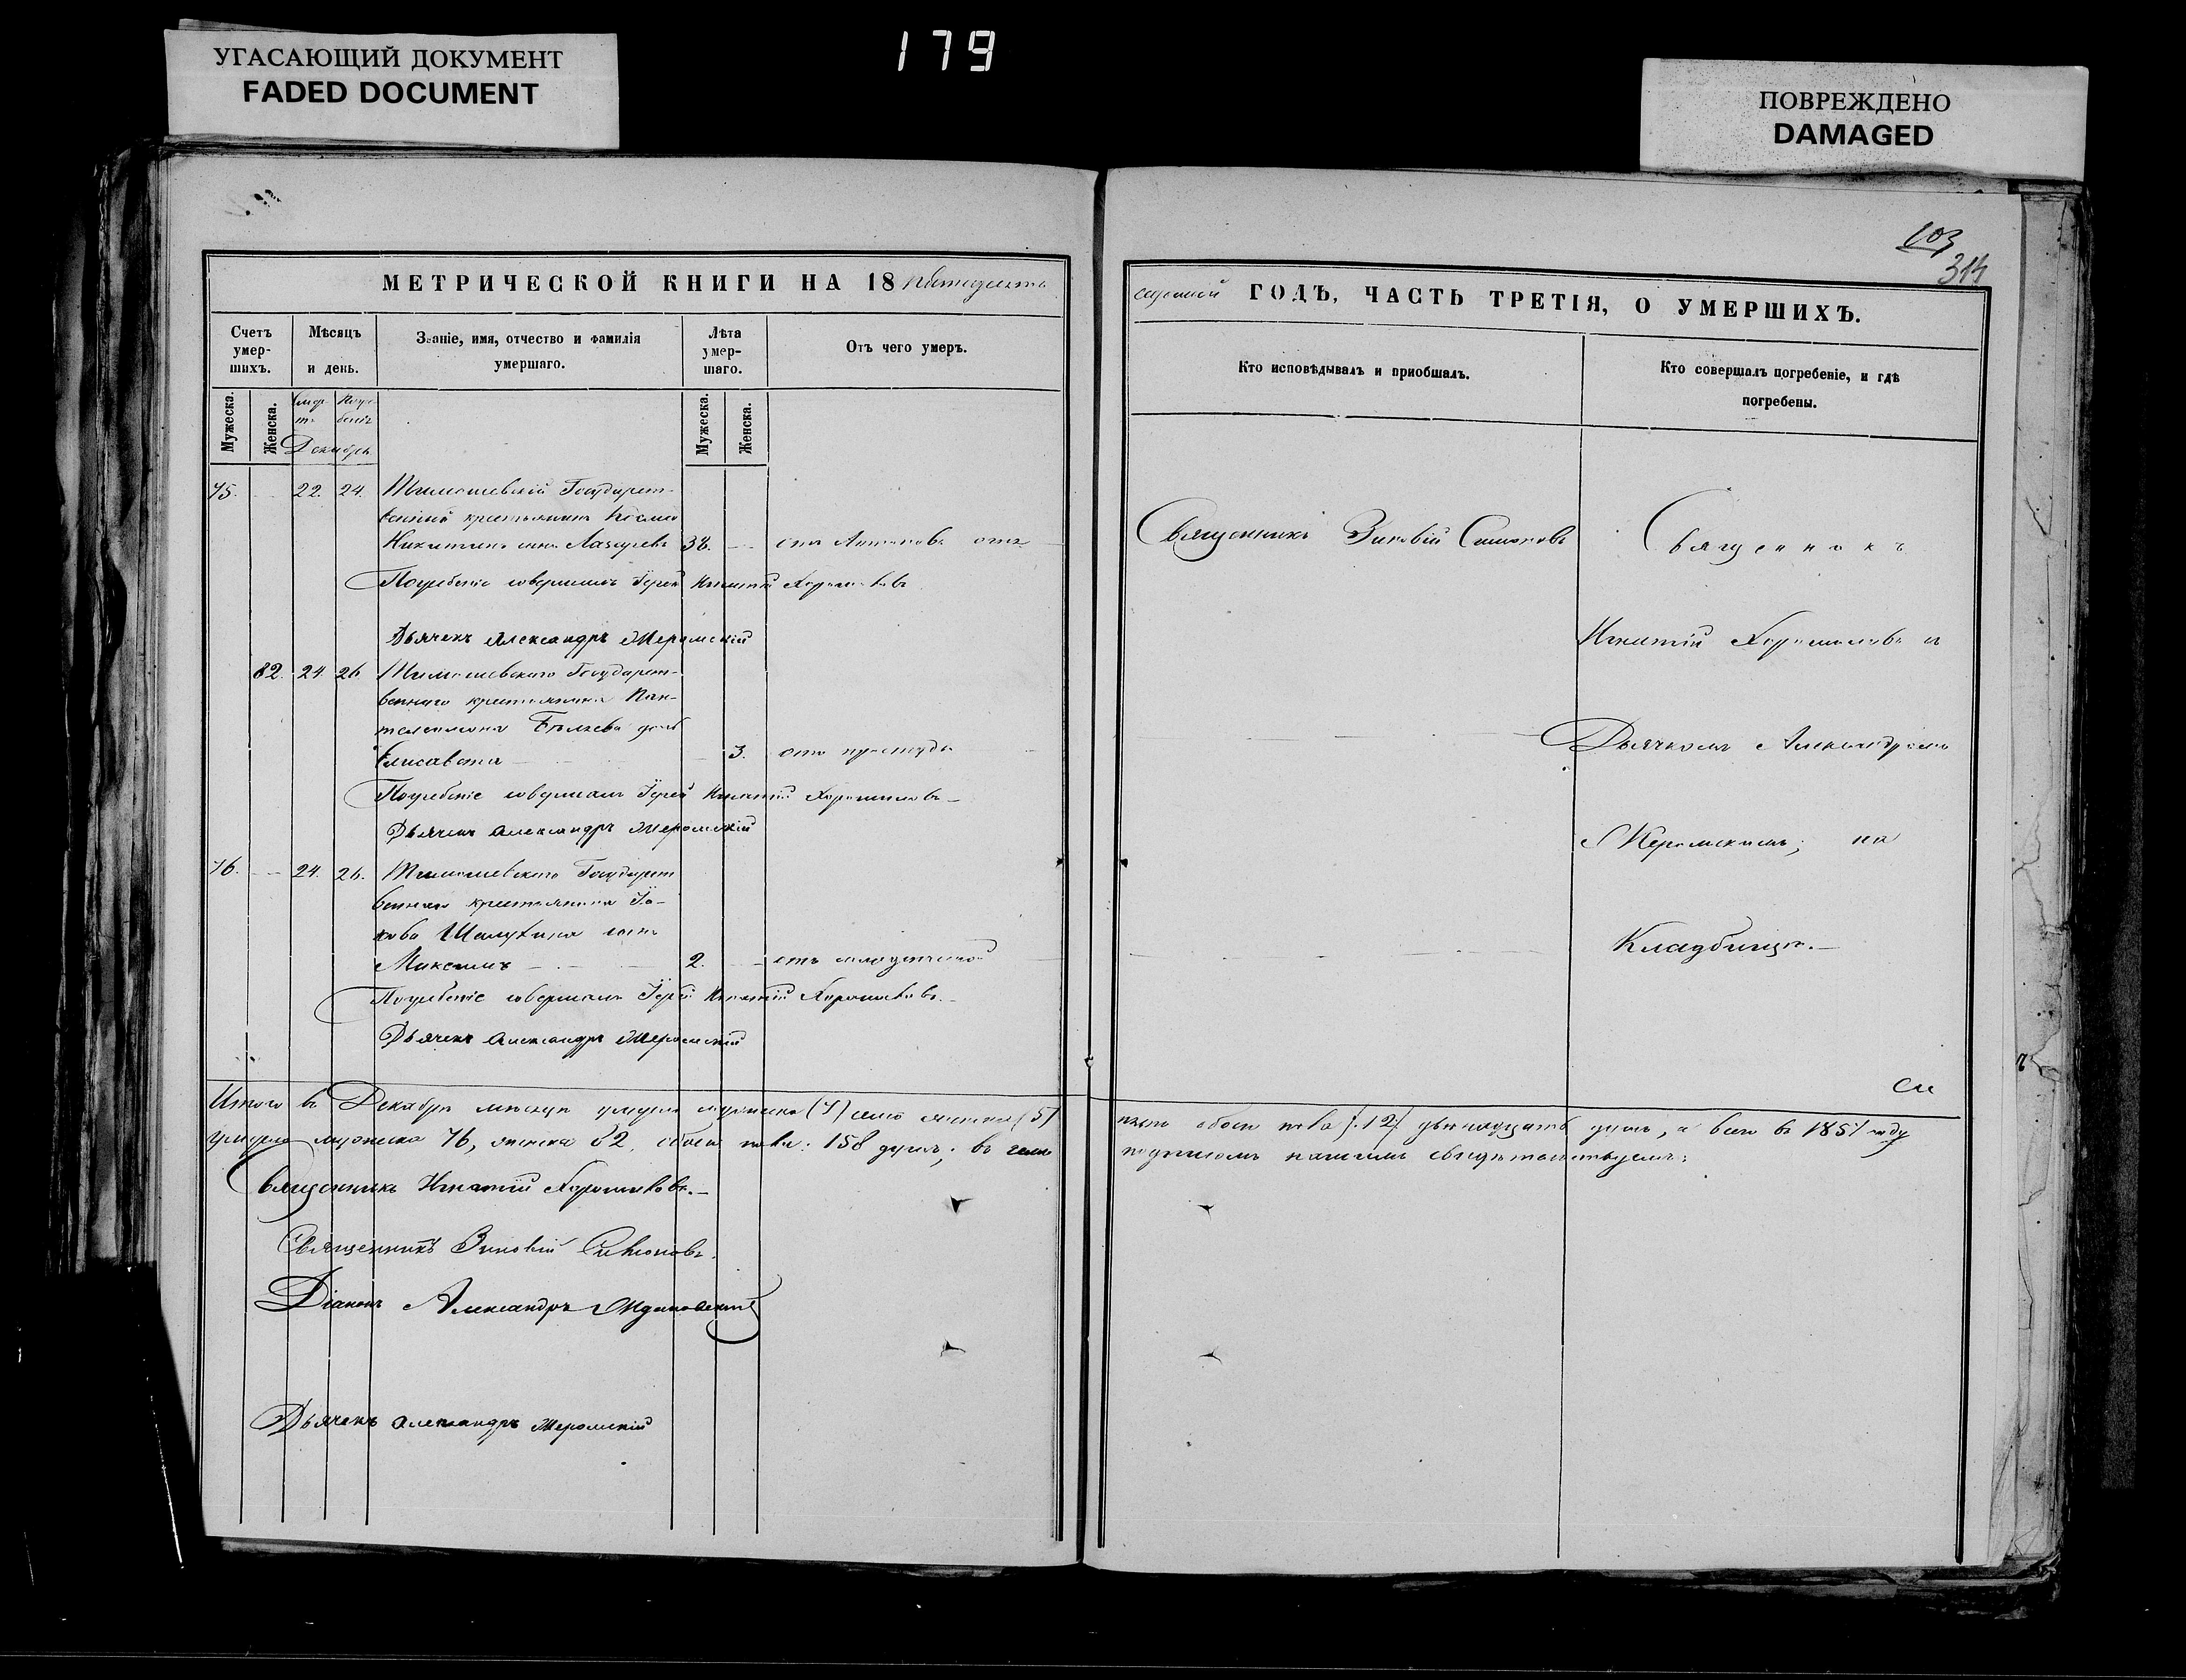 УГАСАЮЩИЙ ДОКУМЕНТ
FADED DOCUMENT
179
ПОВРЕЖДЕНО
DAMAGED
103
314
МЕТРИЧЕСКОЙ КНИГИ НА 18 пятьдесятъ
Счетъ умер-шихъ.
Мѣсяцъ и день.
Званіе, имя, отчество и фамилія умершаго.
Лѣта умер-шаго.
Отъ чего умеръ.
Мужеска.
Женска.
Смер-ти
Погре-бенія
Декабрь
Мужеска.
Женска.
75. 22. 24. Тимошевскій Государст-
венный крестьянинъ Косма
Никитинъ сынъ Лазаревъ 38. отъ Антонова огня
Погребеніе совершалъ Іерей Игнатій Хорошиловъ
Дьячекъ Александръ Жеромскій
82. 24. 26 Тимошевскаго Государст-
веннаго крестьянина Пан-
телеимона Бѣляева дочь
Елисавета 3. отъ простуды
Погребеніе совершалъ Іерей Игнатій Хорошиловъ
Дьячекъ Александръ Жеромскій
76. 24. 26. Тимошевскаго Государст
веннаго крестьянина Іа-
кова Шалухина сынъ
Максимъ 2. отъ
Погребеніе совершалъ Іерей Игнатій Хорошиловъ.
Дьячекъ Александръ Жеромскій
Итого въ Декабрѣ мѣсяцѣ умерло мужеска (7) семь женска (5)
умерло мужеска 76, женска 82, обоего пола: 158 душъ; въ чемъ
Священникъ Игнатій Хорошиловъ.
Священникъ Зиновій Симоновъ.
Діаконъ Александръ Ждановскій
Дьячекъ Александръ Жеромскій
седьмой ГОДЪ, ЧАСТЬ ТРЕТІЯ, О УМЕРШИХЪ.
Кто исповѣдывалъ и приобщалъ.
Кто совершалъ погребеніе, и гдѣ погребены.
Священникъ Зиновій Симоновъ
Священникъ
Игнатій Хорошиловъ съ
Дьячкомъ Александромъ
Жеромскимъ; на
Кладбищѣ.
пять обоего пола (12) двенадцать душъ, а всего въ 1857 году
подписомъ нашимъ свидѣтельствуемъ: